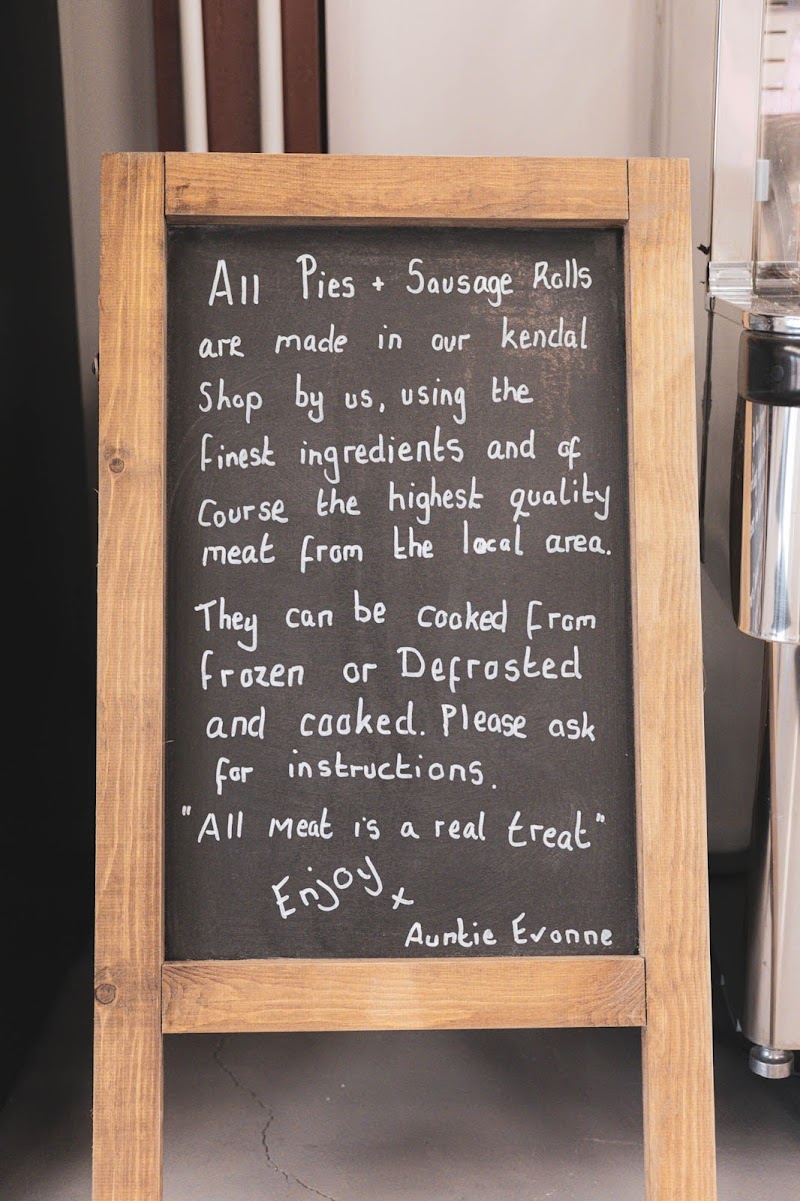 All Pies + Sausage Rolls
are made in our kendal
Shop by us, using the
finest ingredients and of
Course the highest quality
meat from the local area.
They can be cooked from
frozen or Defrosted
and cooked. Please ask
for instructions.
"All Meat is a real treat"
Enjoy x
Auntie Evonne